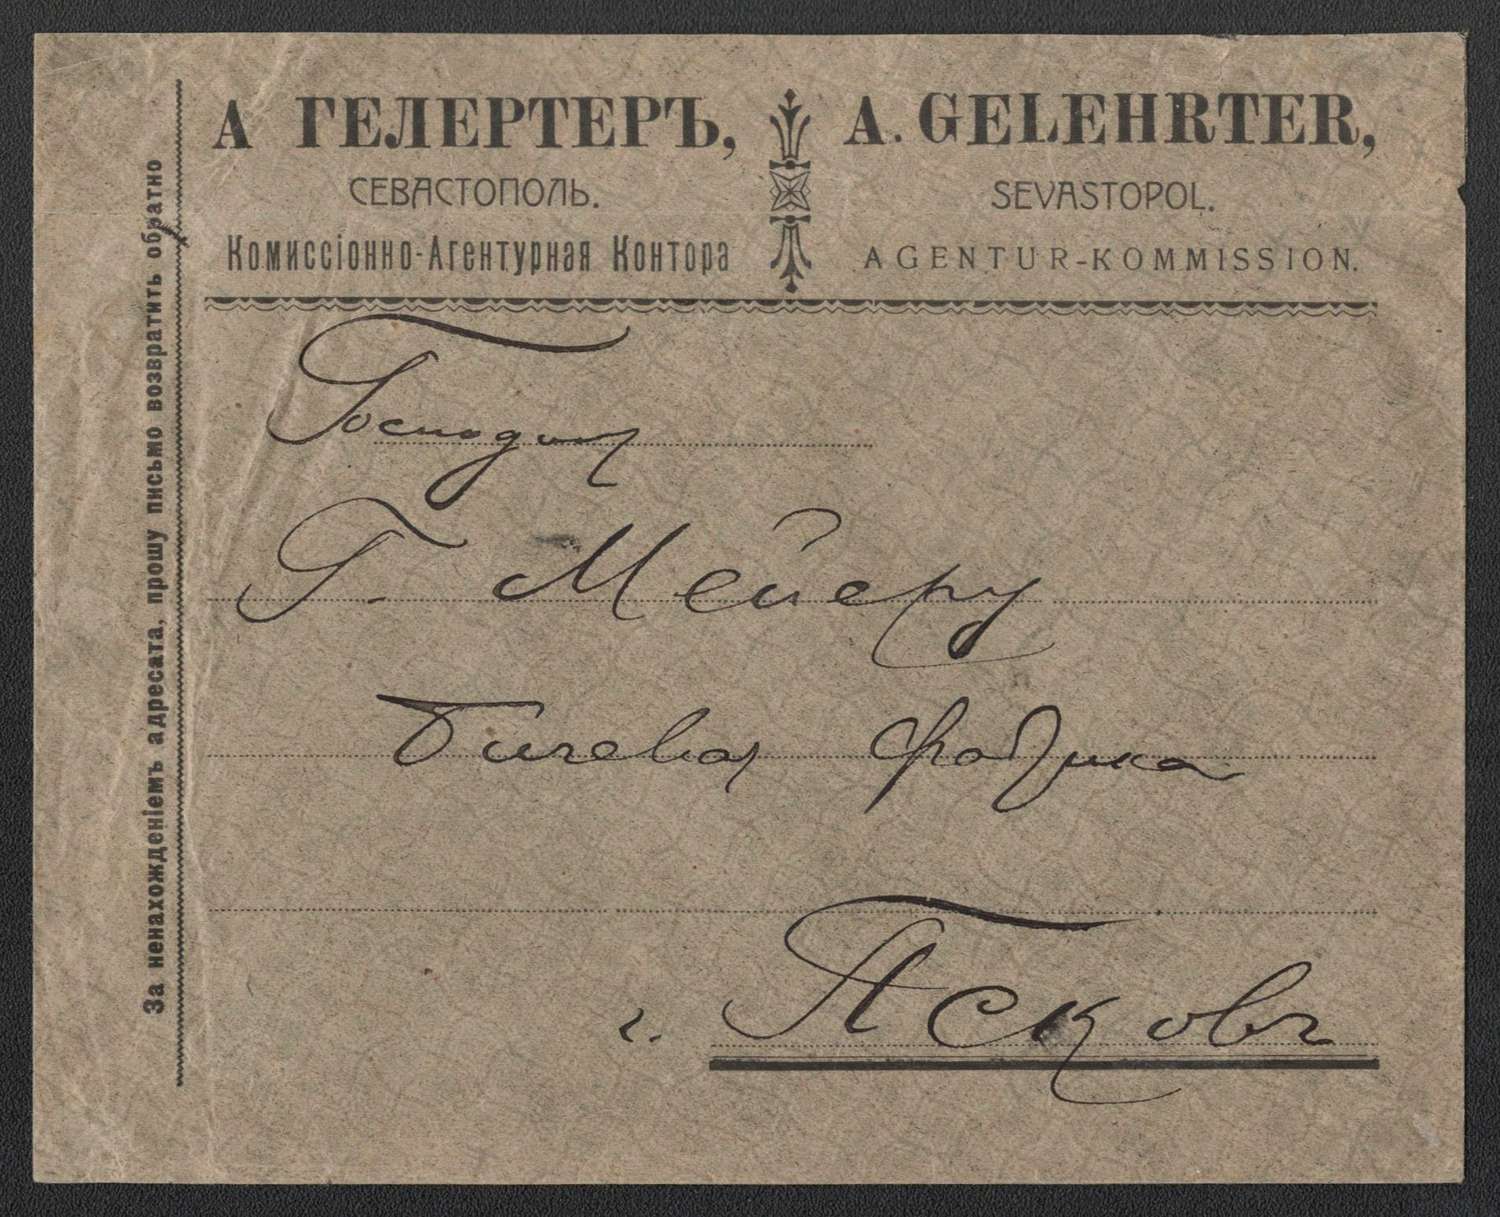 А ГЕЛЕРТЕРЪ,
СЕВАСТОПОЛЬ.
Комиссіонно-Агентурная Контора
A. GELEHRTER,
SEVASTOPOL.
AGENTUR-KOMMISSION.
За ненахожденіемъ адресата, прошу письмо возвратить обратно
Господину
Г. Мейеру
Бичевая фабрика
г. Псковъ